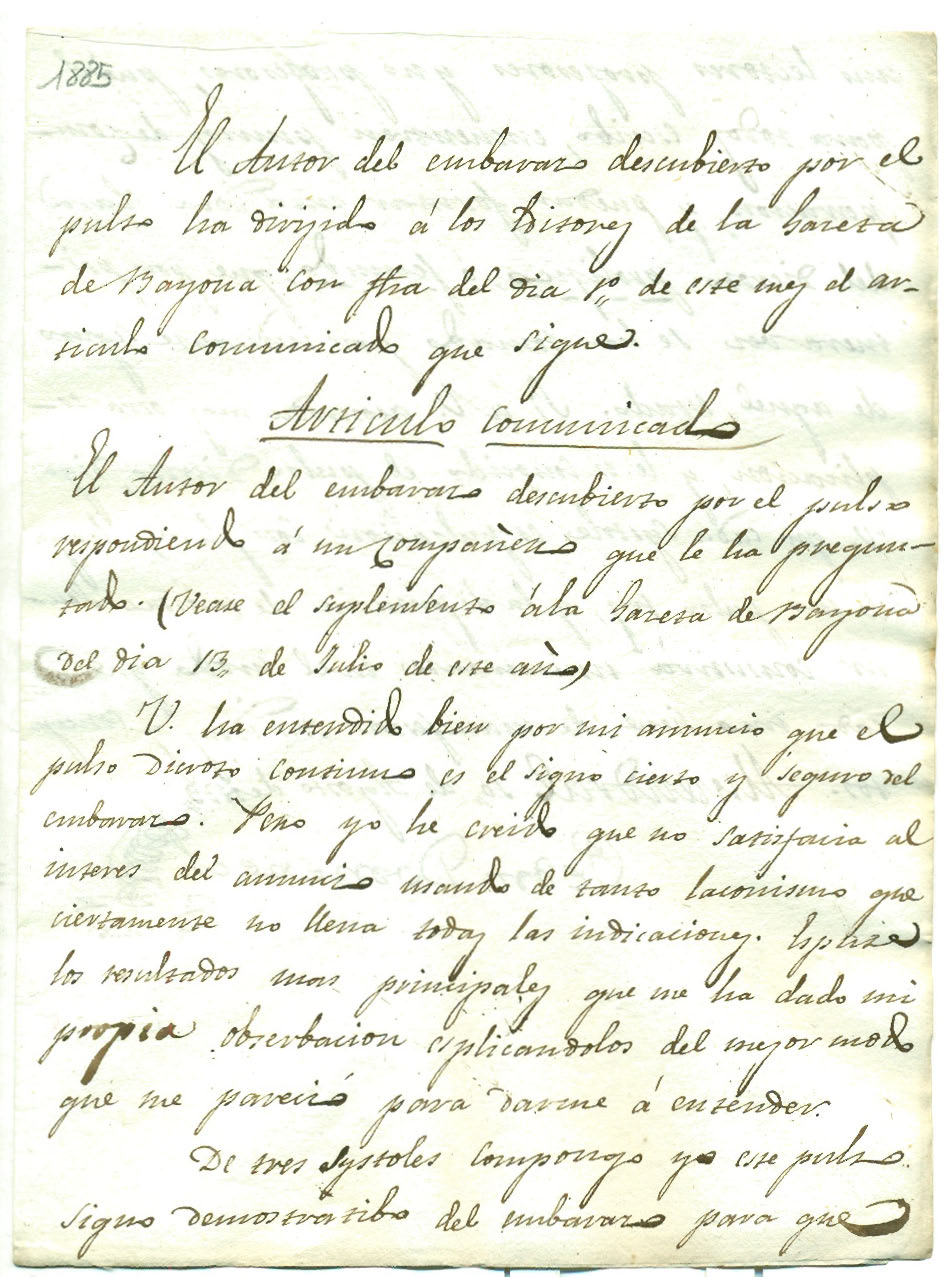 1885
El Autor del embarazo descubierto por el
pulso ha dirijido á los Editores de la Gazeta
de Bayona con fha del dia 1º de este mes el ar-
ticulo comunicado que sigue.
Articulo comunicado
El Autor del embarazo descubierto por el pulso
respondiendo á un compañero que le ha pregun-
tado. (Vease el suplemento ála Gazeta de Bayona
del dia 13, de Julio de este año)
V. ha entendido bien por mi anuncio que el
pulso dicroto continuo es el signo cierto y seguro del
embarazo. Pero yo he creido que no satisfacia al
interes del anuncio usando de tanto laconismo que
ciertamente no llena todas las indicaciones. Espuse
los resultados mas principales que me ha dado mi
propia observacion esplicandolos del mejor modo
que me pareció para darme á entender.
De tres systoles compongo yo este pulso
signo demostratibo del embarazo para que